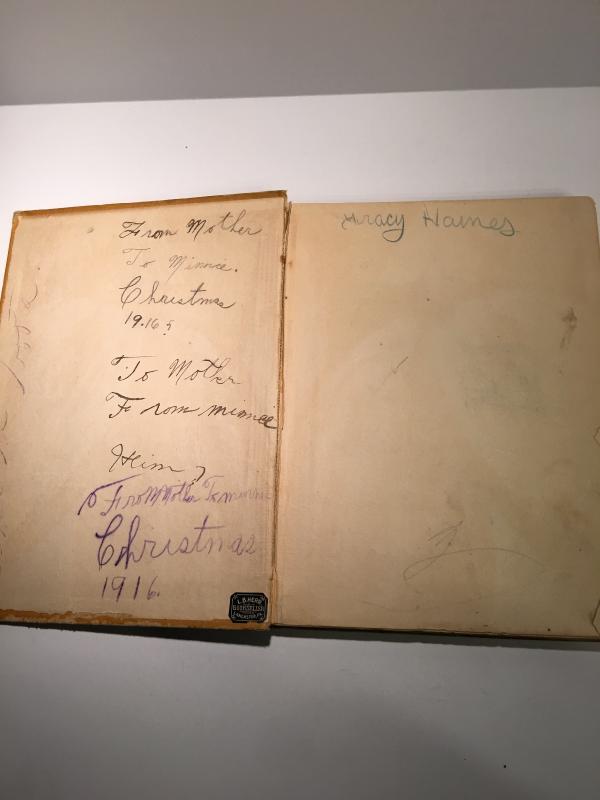 From Mother
To Minnie.
Christmas
19.16?
To Mother
From minnie
Heim ?
From Mother To minnie
Christmas
1916.
L.B. HERR
BOOKSELLER
LANCASTER, PA.
Gracy Haines